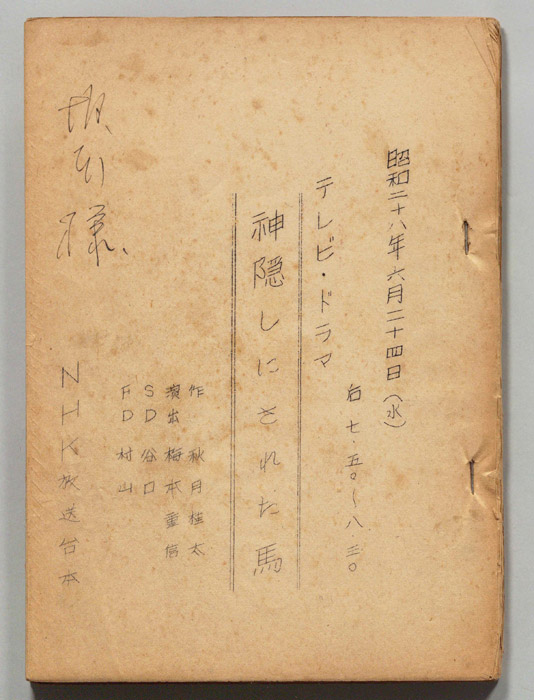 昭和二十八年六月二十四日(水)
后七.五〇〜八.三〇
テレビ・ドラマ
神隠しにされた馬
作 秋月桂太
演出 梅本重信
SD 谷口
FD 村山
NHK放送台本
様